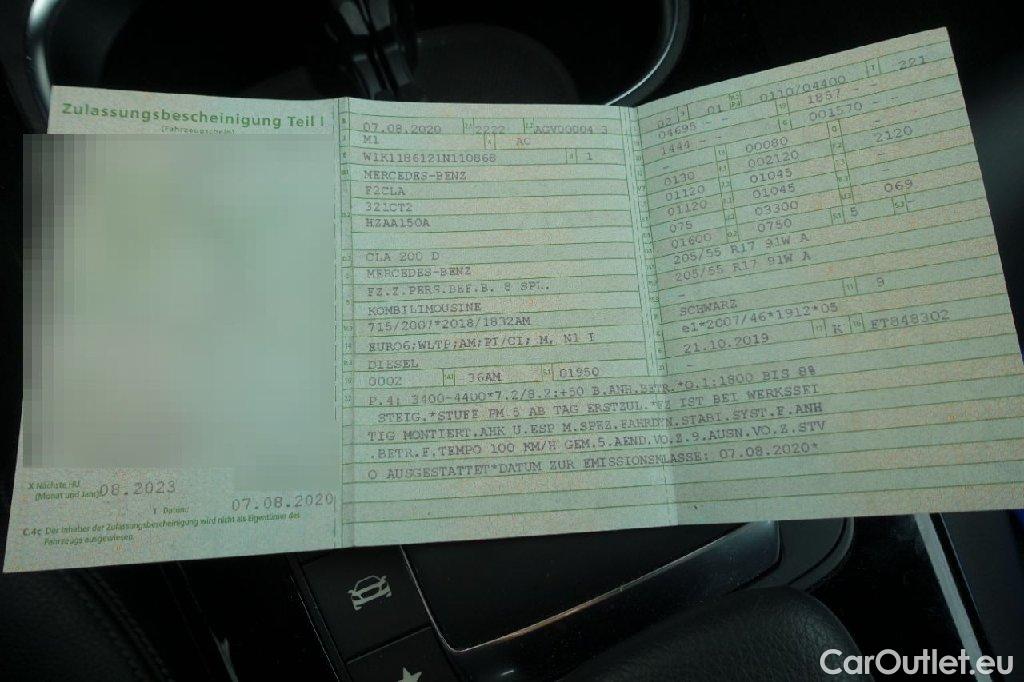 Zulassungsbescheinigung Teil I
(Fahrzeugschein)
X Nächste HU
(Monat und Jahr) 08.2023
I Datum: 07.08.2020
C.4c Der Inhaber der Zulassungsbescheinigung wird nicht als Eigentümer des
Fahrzeugs ausgewiesen.
07.08.2020 2222 AGV00004 3
M1 AC
W1K1186121N110868 1
MERCEDES-BENZ
F2CLA
321CT2
HZAA150A
CLA 200 D
MERCEDES-BENZ
FZ.Z.PERS.BEF.B. 8 SPL.
KOMBILIMOUSINE
715/2007*2018/1832AM
EURO6;WLTP;AM;PI/CI; M, N1 I
DIESEL
0002 36AM 01950
P.4: 3400-4400*7.2/8.2:+50 B.ANH.BETR.*O.1:1800 BIS 8%
STEIG.*STUFE PM 5 AB TAG ERSTZUL.*FZ IST BEI WERKSSEI
TIG MONTIERT.AHK U.ESP M.SPEZ.FAHRDYN.STABI.SYST.F.ANH
.BETR.F.TEMPO 100 KM/H GEM.5.AEND.VO.Z.9.AUSN.VO.Z.STV
O AUSGESTATTET*DATUM ZUR EMISSIONSKLASSE: 07.08.2020*
02 01 0110/04400 221
04695 - - 1857 - -
1444 - - 001570 - -
- 00080 -
0130 002120 2120
01120 01045 -
01120 01045 -
075 03300 069
01600 0750 5 -
205/55 R17 91W A
205/55 R17 91W A
-
SCHWARZ 9
e1*2007/46*1912*05
21.10.2019 K ET848302
-
CarOutlet.eu